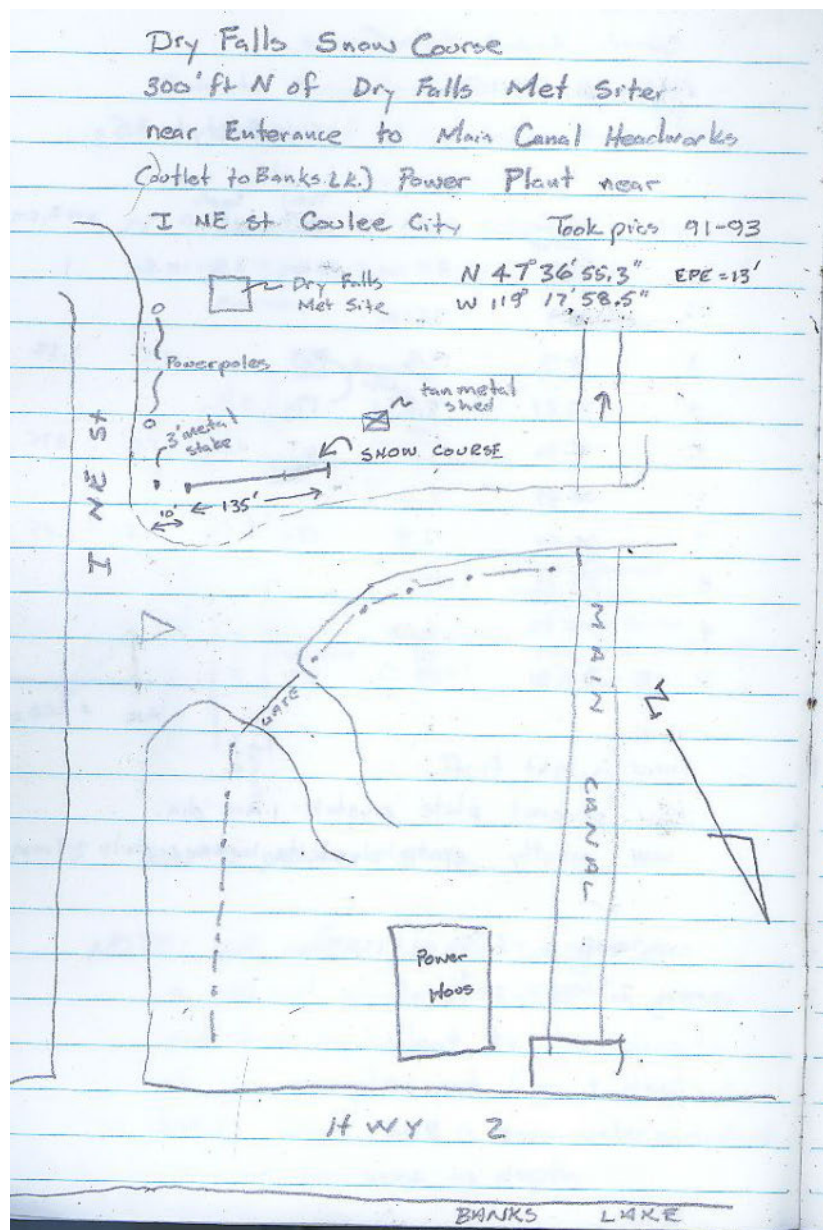 Dry Falls Snow Course
300' ft N of Dry Falls Met Site
near Enterance to Main Canal Headworks
(outlet to Banks Lk.) Power Plant near
I NE St Coulee City Took pics 91-93
N 47° 36' 55.3" EPE = 13'
W 119° 17' 58.5"
Dry Falls
Met Site
Powerpoles
tan metal
shed
3' metal
stake
SNOW COURSE
10' 135'
I NE St
GATE
MAIN CANAL
N
Power
Hous
HWY 2
BANKS LAKE